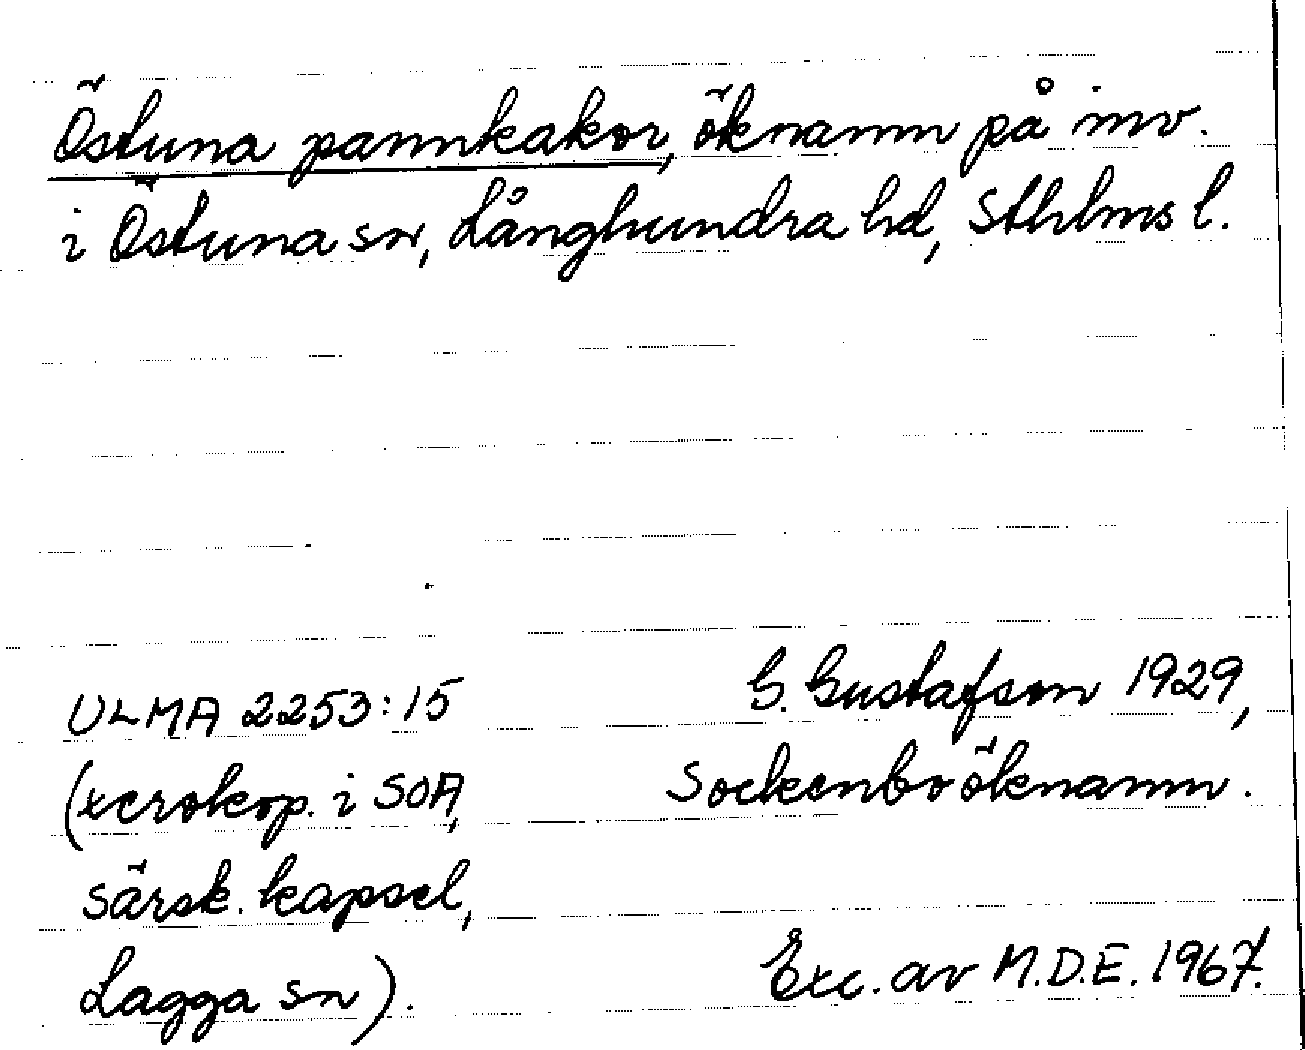 Östuna pannkakor, öknamn på inv.
i Östuna sn, Långhundra hd, Sthlms l.
ULMA 2253:15
(xerokop. i SOA,
särsk. kapsel,
Lagga sn).
G. Gustafson 1929,
Sockenboöknamn.
Exc. av M.D.E. 1967.